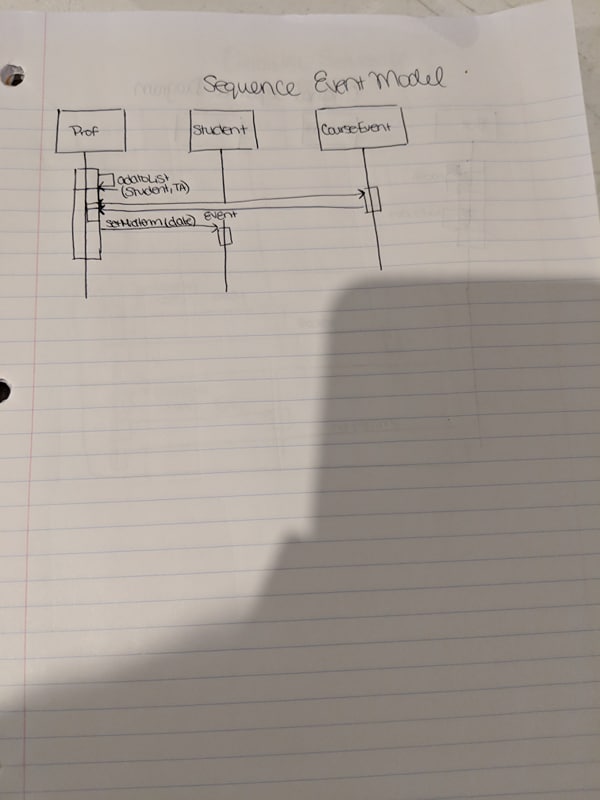 Sequence Event Model
Prof
Student
CourseEvent
addToList
(Student, TA)
Event
setMidterm(date)